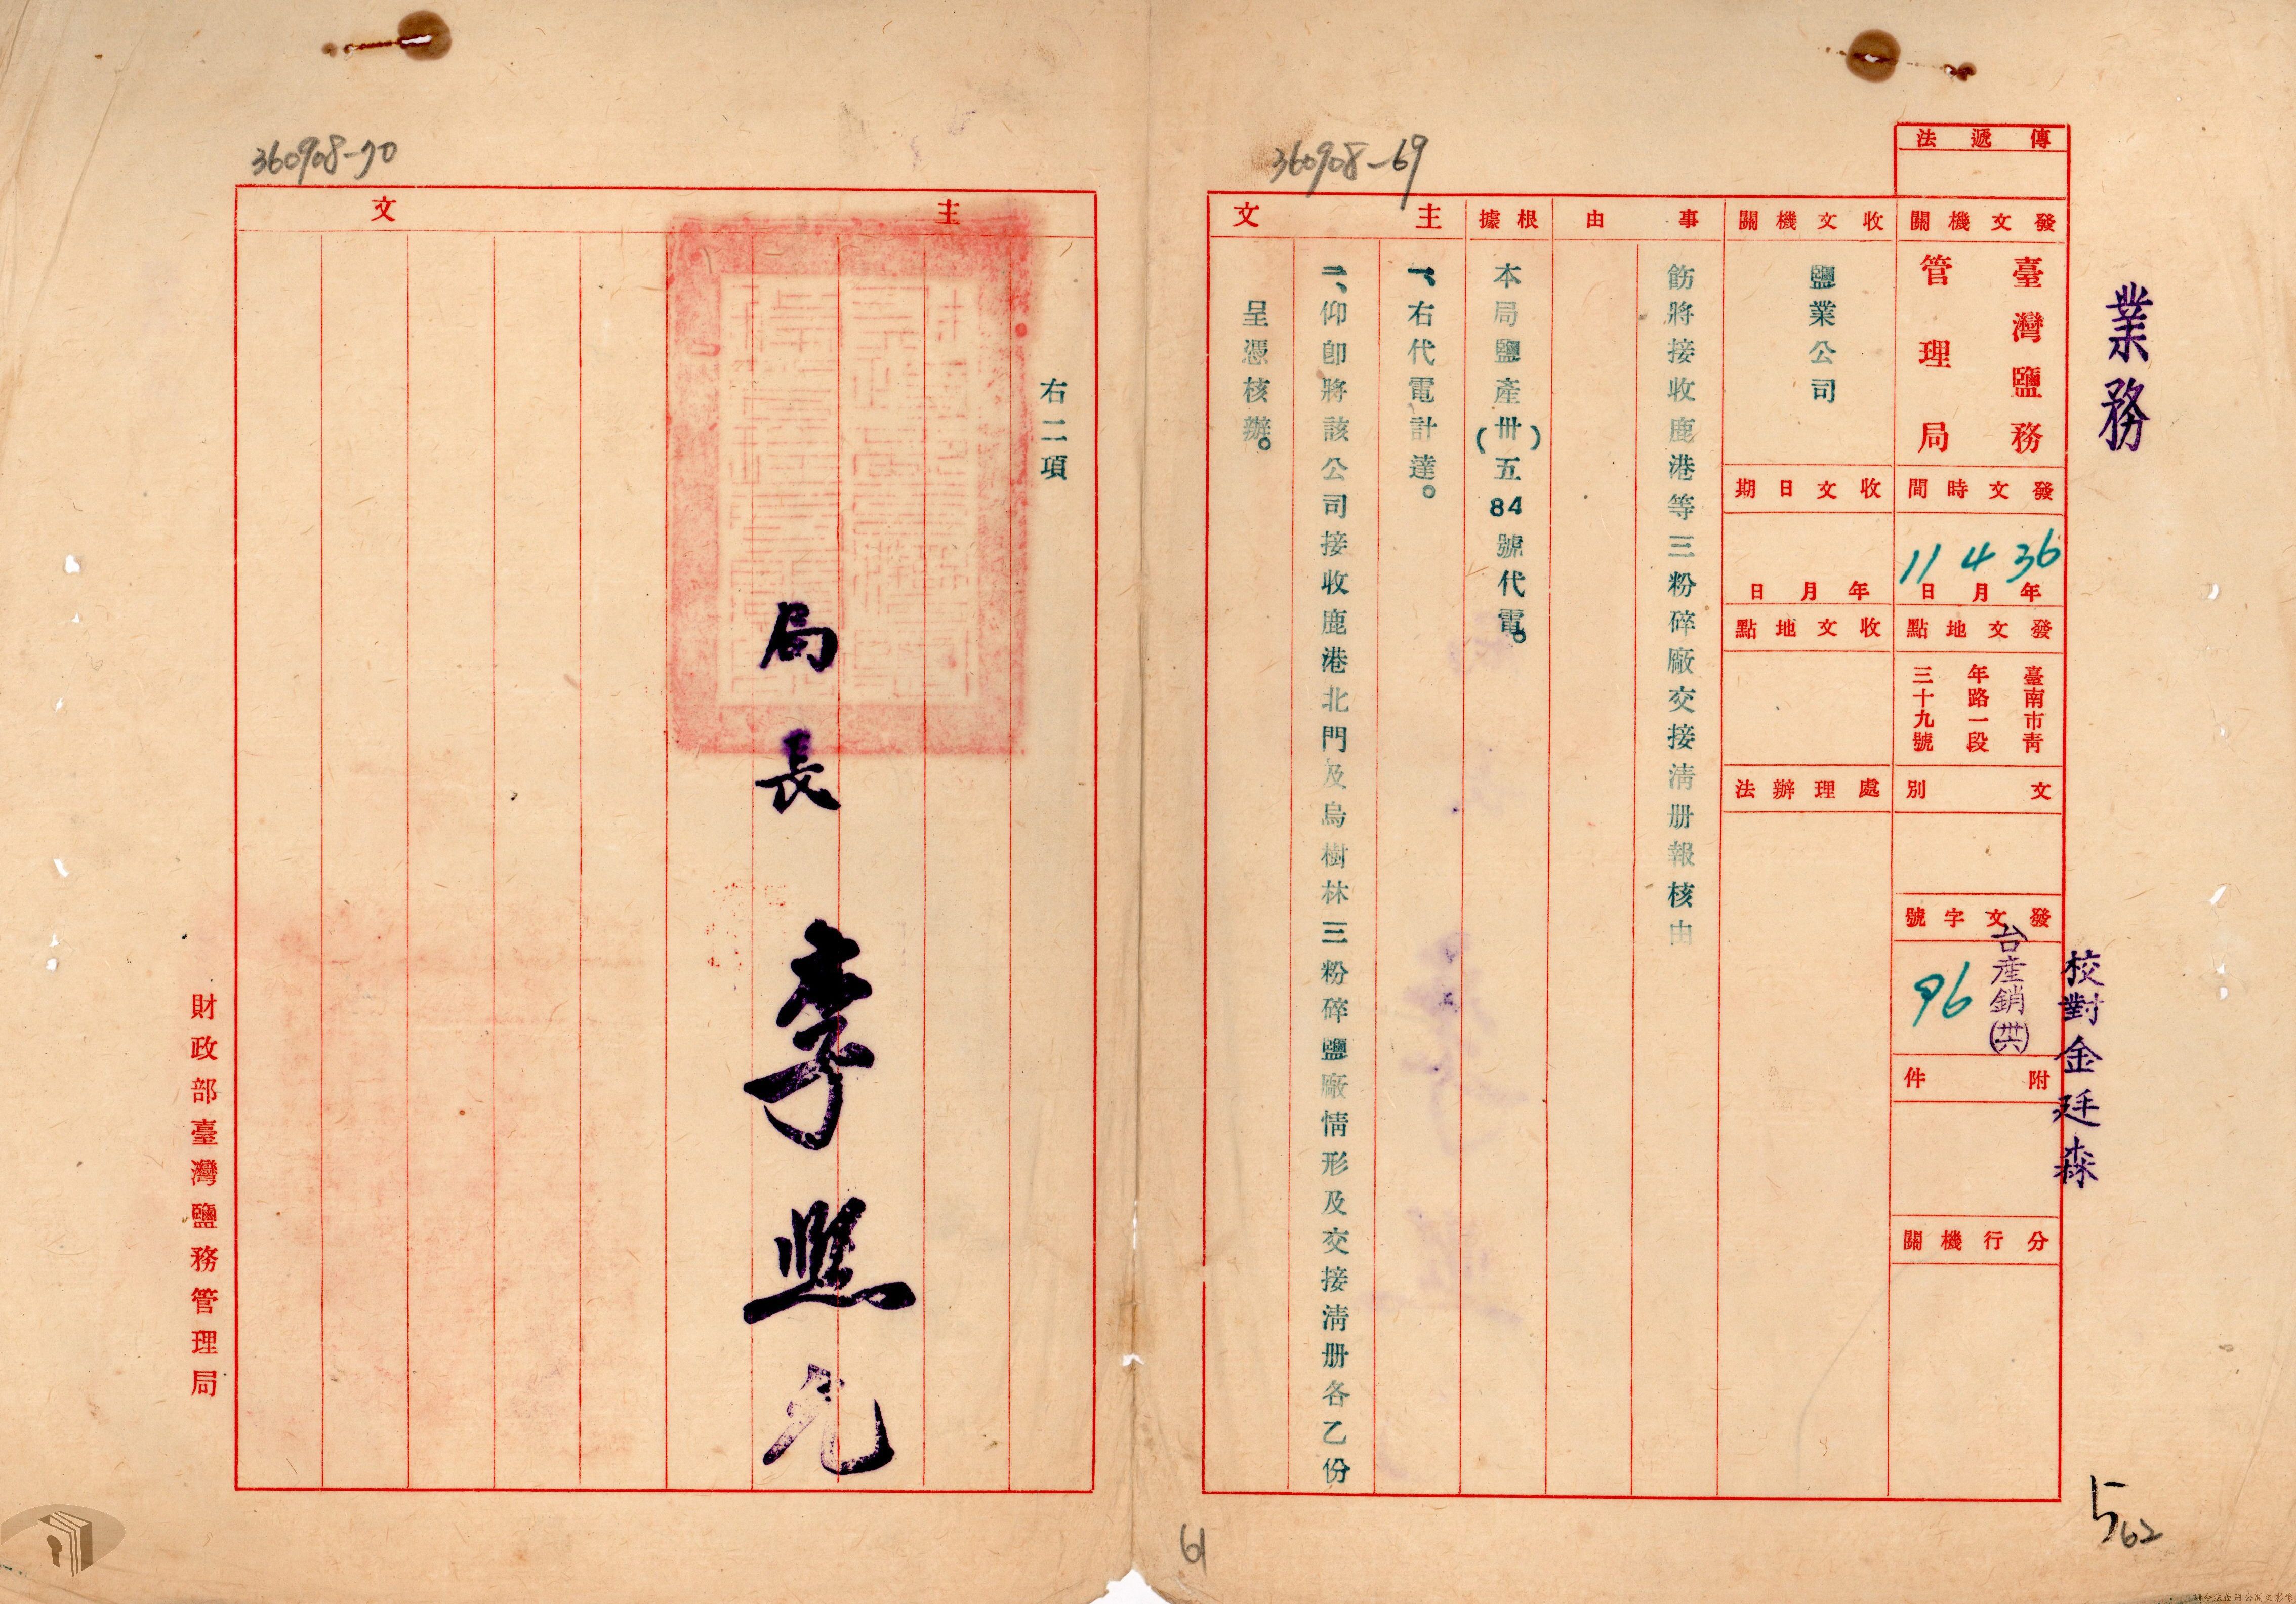 業務
校對金廷森
傳遞法
發文機關
臺灣鹽務
管理局
發文時間
36年4月11日
發文地點
臺南市青
年路一段
三十九號
文別
發文字號
台產銷(卅六)
96
附件
分行機關
收文機關
鹽業公司
收文日期
年月日
收文地點
處理辦法
事由
飭將接收鹿港等三粉碎廠交接清册報核由
根據
本局鹽產(卅)五84號代電。
主文
一、右代電計達。
二、仰卽將該公司接收鹿港北門及烏樹林三粉碎鹽廠情形及交接清册各乙份
呈憑核辦。
360908-69
5
62
61
360908-70
主文
右二項
局長 李照允
財政部臺灣鹽務管理局